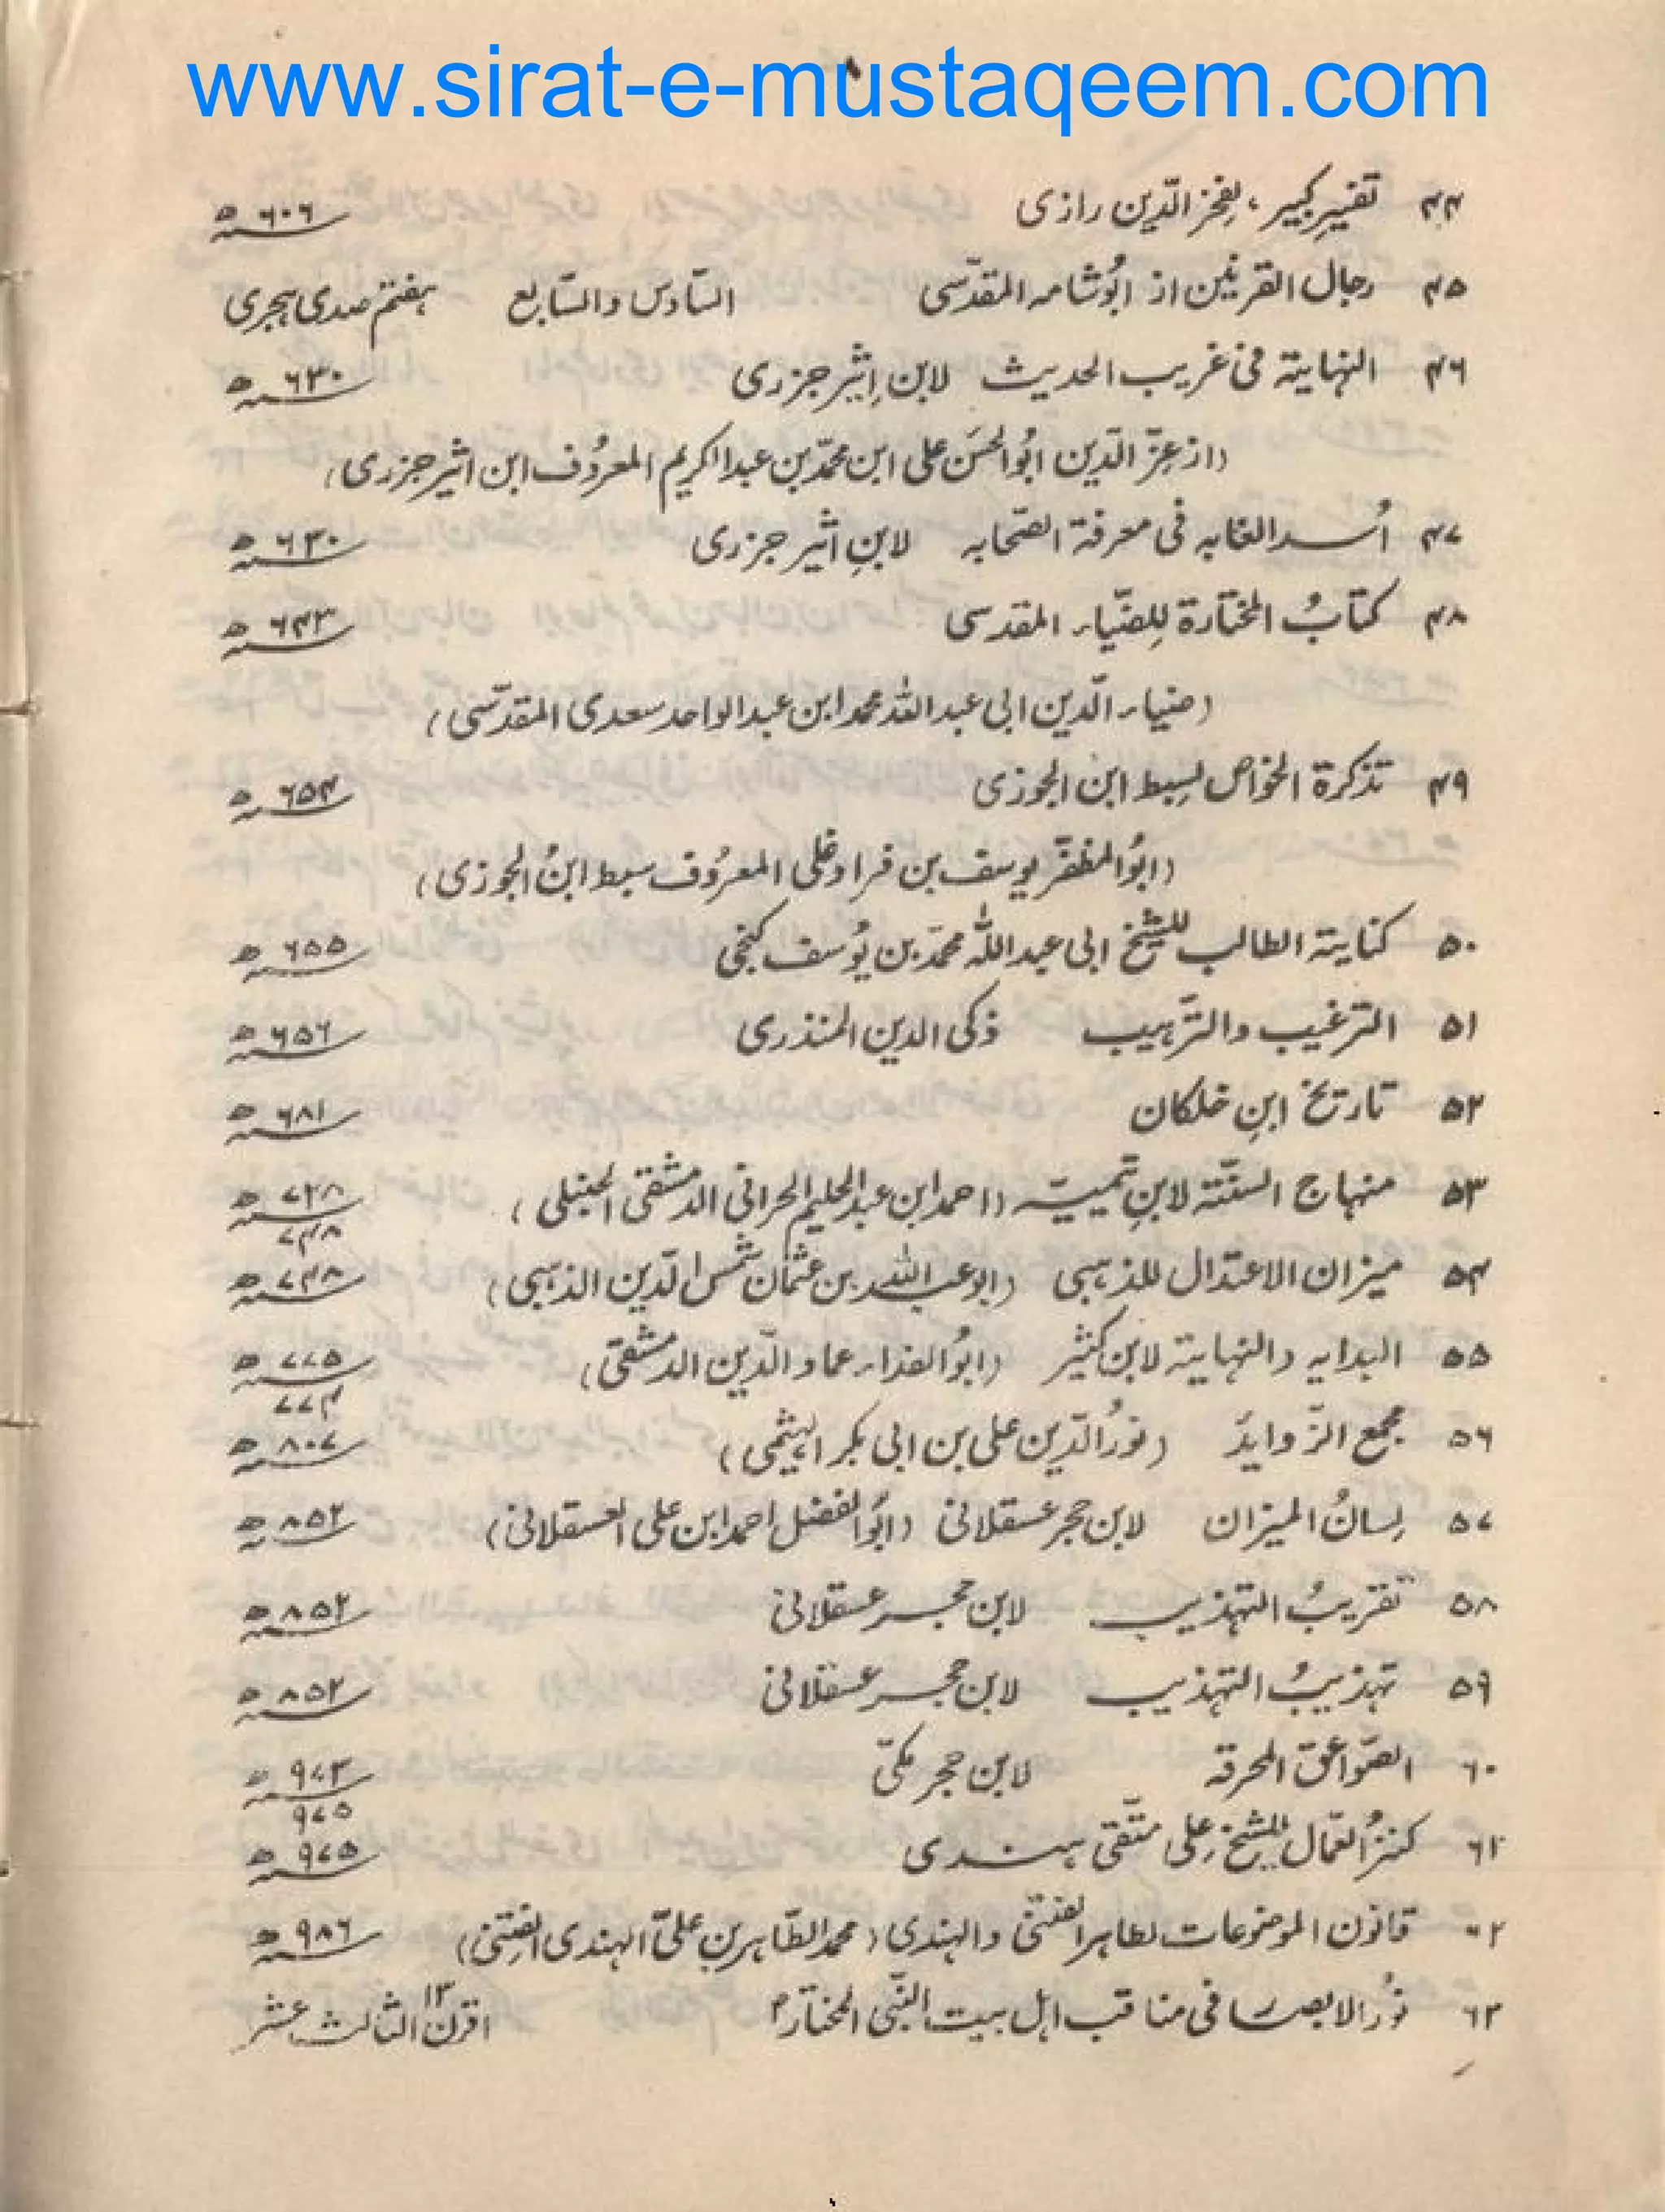 www.sirat-e-mustaqeem.com
۸
۴۴ تفسیرِ کبیر، لِفخرالدّین رازی ۶۰۶ھ
۴۵ رجال القرنین از ابُوشامہ المقدّسی السّادس والسّابع ہفتم صدی ہجری
۴۶ النہایتہ فی غریب الحدیث لابن اِثیر جزری ۶۳۰ھ
(از عِزّ الدّین ابُوالحسَن علی ابن محمّد بن عبدالکریم المعرُوف ابن اثیر جزری)
۴۷ اُسد الغابہ فی معرفۃ الصّحابہ لابنِ اثیر جزری ۶۳۰ھ
۴۸ کتابُ المختارۃ لِلضّیاء المقدسی ۶۴۳ھ
(ضیاء الدّین ابی عبداللہ محمد ابن عبدالواحد سعدی المقدّسی)
۴۹ تذکرۃ الخواص لسِبط ابن الجوزی ۶۵۴ھ
(ابُوالمظفّر یوسف بن فراوغلی المعرُوف سبط ابنُ الجوزی)
۵۰ کفایتہ الطالب للشیخ ابی عبداللہ محمّد بن یُوسف گنجی ۶۵۵ھ
۵۱ الترغیب والتّرہیب ذکی الدین المنذری ۶۵۶ھ
۵۲ تاریخ ابنِ خلکان ۶۸۱ھ
۵۳ منہاج السنّتہ لابنِ تیمیّہ (احمد ابن عبدالحلیم الحرانی الدمشقی الحنبلی) ۷۲۸ھ
۷۴۸
۵۴ میزان الاعتدال للذہبی (ابوعبداللہ بن عثمان شمس الدّین الذہبی) ۷۴۸ھ
۵۵ البدایہ والنہایتہ لابن کثیر (ابُوالفداء عماد الدّین الدمشقی) ۷۷۵ھ
۷۷۴
۵۶ مجمع الزّوایدَ (نورُ الدّین علی بن ابی بکر الہیثمی) ۸۰۷ھ
۵۷ لِسانُ المیزان لابن حجر عسقلانی (ابُوالفضل احمد ابن علی العسقلانی) ۸۵۲ھ
۵۸ تقریبُ التہذیب لابن حجر عسقلانی ۸۵۲ھ
۵۹ تہذیبُ التہذیب لابن حجر عسقلانی ۸۵۲ھ
۶۰ الصّواعق المحرقہ لابن حجر مکّی ۹۷۳ھ
۹۷۵
۶۱ کنزُ العمّال للشیخ علی متّقی ہندی ۹۷۵ھ
۶۲ قانون الموضوعات لطاہر الفتنی والہندی (محمد الطّاہر بن علیّ الہندی الفتنی) ۹۸۶ھ
۶۳ نُورُ الابصار فی مناقب اہل بیت النّبی المختارؐ اقرن ۱۳ الثالث عشر